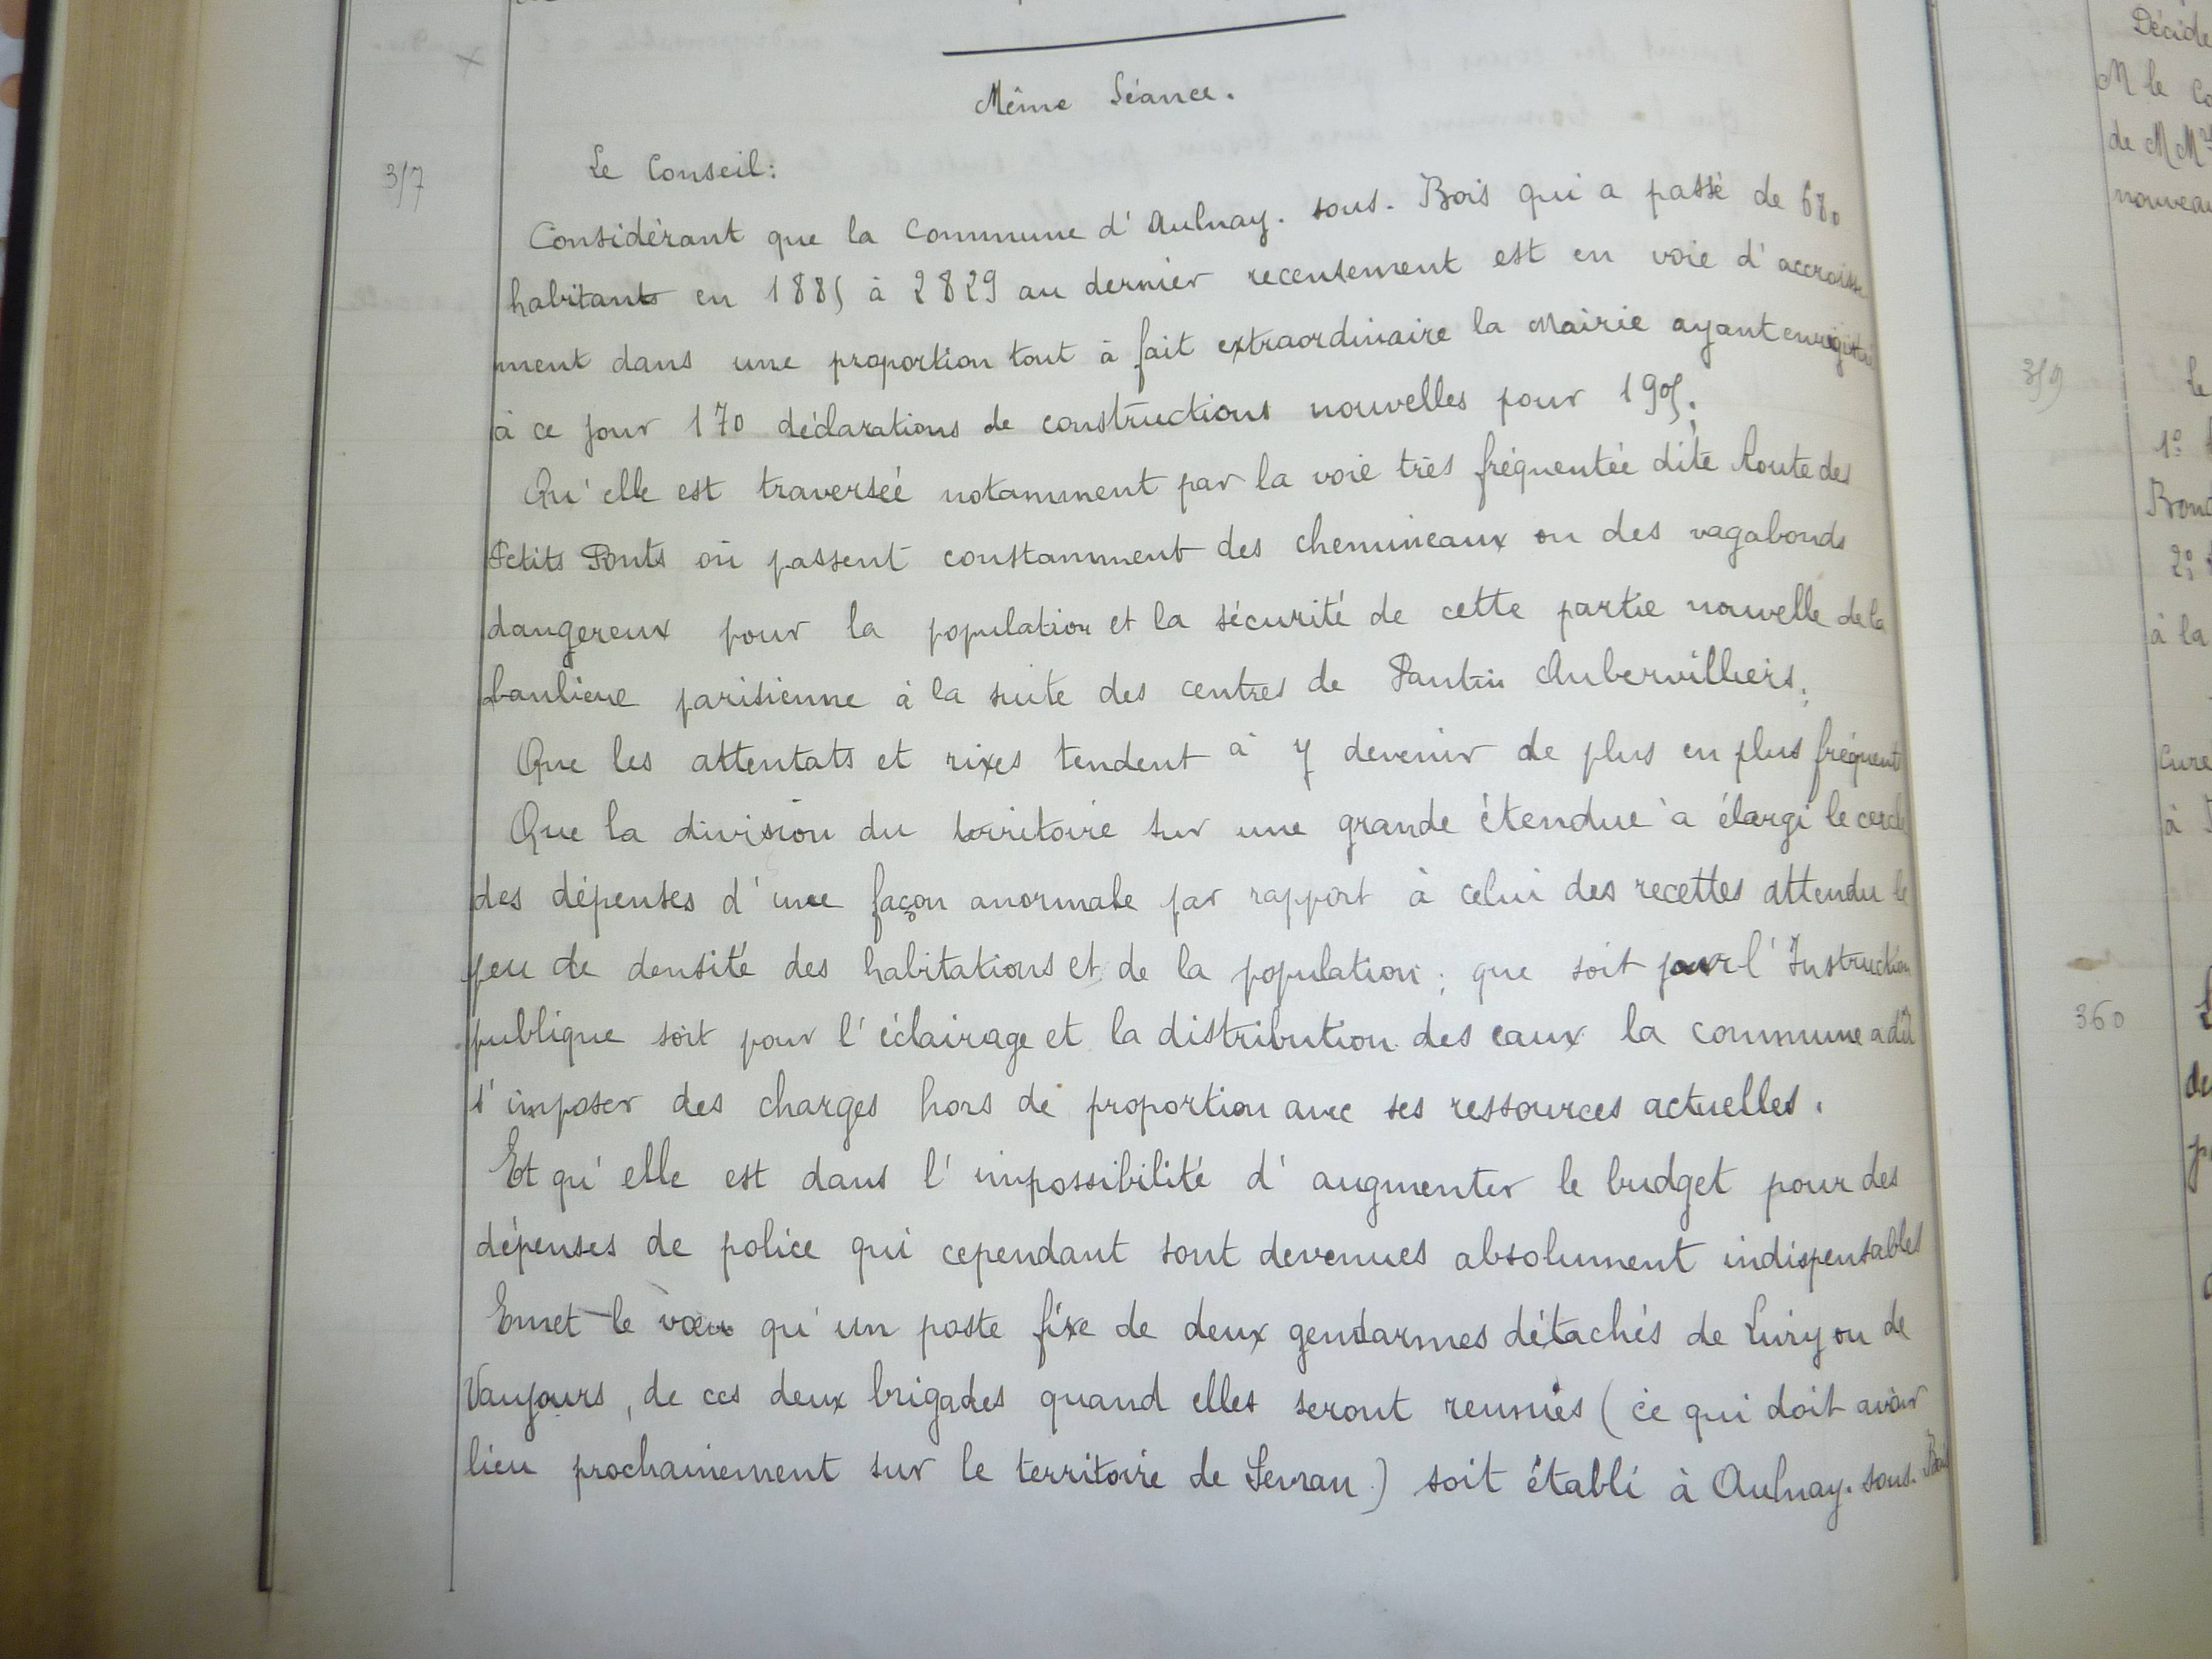 Même Séance.
357
Le Conseil:
Considérant que la Commune d'Aulnay. sous. Bois qui a passé de 680
habitants en 1885 à 2829 au dernier recensement est en voie d'accroisse
ment dans une proportion tout à fait extraordinaire la Mairie ayant enregistré
à ce jour 170 déclarations de constructions nouvelles pour 1905;
Qu'elle est traversée notamment par la voie très fréquentée dite Route des
Petits Ponts où passent constamment des chemineaux ou des vagabonds
dangereux pour la population et la sécurité de cette partie nouvelle de la
banlieue parisienne à la suite des centres de Pantin Aubervilliers;
Que les attentats et rixes tendent à y devenir de plus en plus fréquents
Que la division du territoire sur une grande étendue a élargi le cercle
des dépenses d'une façon anormale par rapport à celui des recettes attendu le
peu de densité des habitations et de la population; que soit pour l'Instruction
publique soit pour l'éclairage et la distribution des eaux la commune a dû
s'imposer des charges hors de proportion avec ses ressources actuelles.
Et qu'elle est dans l'impossibilité d'augmenter le budget pour des
dépenses de police qui cependant sont devenues absolument indispensables
Emet le vœu qu'un poste fixe de deux gendarmes détachés de Livry ou de
Vaujours, de ces deux brigades quand elles seront reunies (ce qui doit avoir
lieu prochainement sur le territoire de Sevran) soit établi à Aulnay. sous. Bois
Décide
M le
de MM
nouveau
359
Le
1°
Bond
2°
à la
Cure
à
360
de